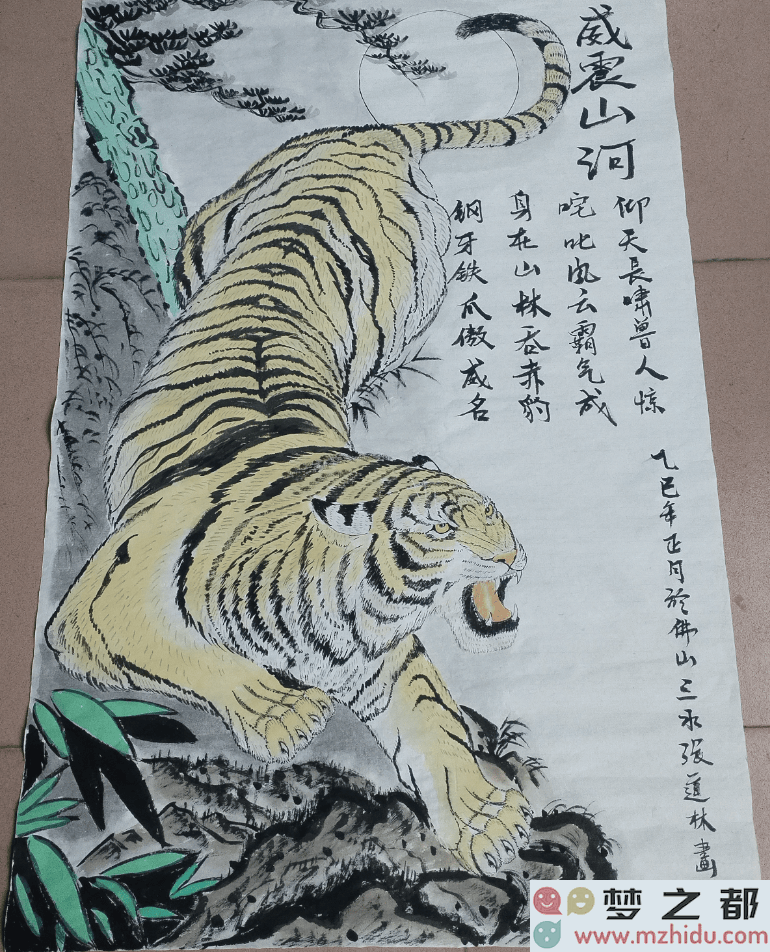 威震山河
仰天長啸兽人惊
咤叱风云霸气成
身在山林吞赤豹
钢牙铁爪傲威名
乙巳年正月於佛山三水張道林畫
梦之都
www.mzhidu.com